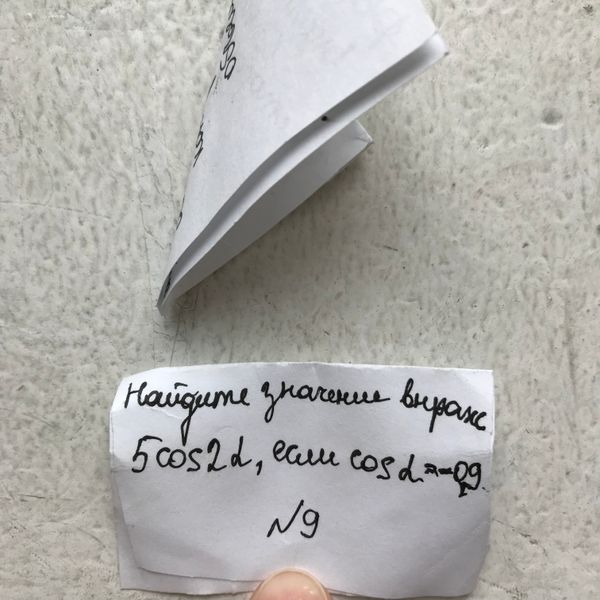 Найдите значение выраж.
5cos2α, если cosα=-0,9
N9